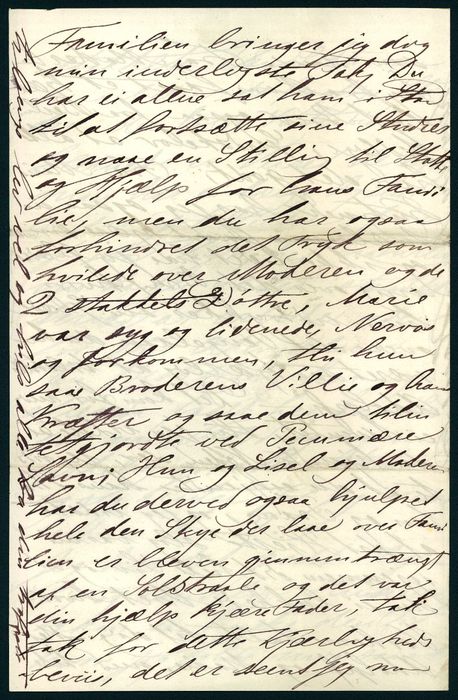 Familien bringer jeg dog
min inderligste Tak, Du
har ei allene sat ham i Stan
til at fortsætte sine Studier
og naae en Stilling til Støtte
og Hjælp for hans Fami
lie, men du har ogsaa
forhindret det Tryk som
hvilede over Moderen og de
2 stakkels Døttre, Marie
var syg og lidende, Nervøs
og forkommen, thi hun
saae Broderens Villie og hans
Kræfter og saae dem tilin
tetgjordte ved Pecuniære
Savn; Hun og Lisel og Moderen
har du derved ogsaa hjulpet
hele den Skye der laae over Fami
lien er bleven gjennemtrængt
af en Solstraale og det var
din hjælp kjære Fader, tak
tak for dette Kjærligheds
beviis, det er seent jeg nu